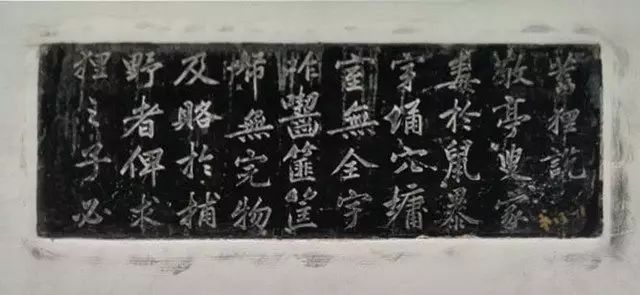 蓄狸說
敬亭叟家
毒於鼠暴
穿埇穴墉
室無全宇
咋齧篚筐
帑無完物
及賂於捕
野者俾求
狸之子必